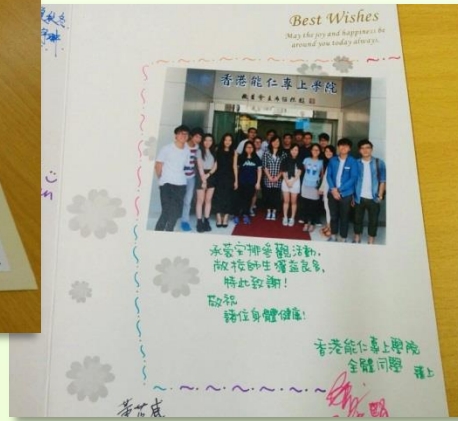 Best Wishes
May the joy and happiness be
around you today always.
香港能仁專上學院
承蒙安排參觀活動,
敝校師生獲益良多,
特此致謝!
敬祝
諸位身體健康!
香港能仁專上學院
全體同學
謹上